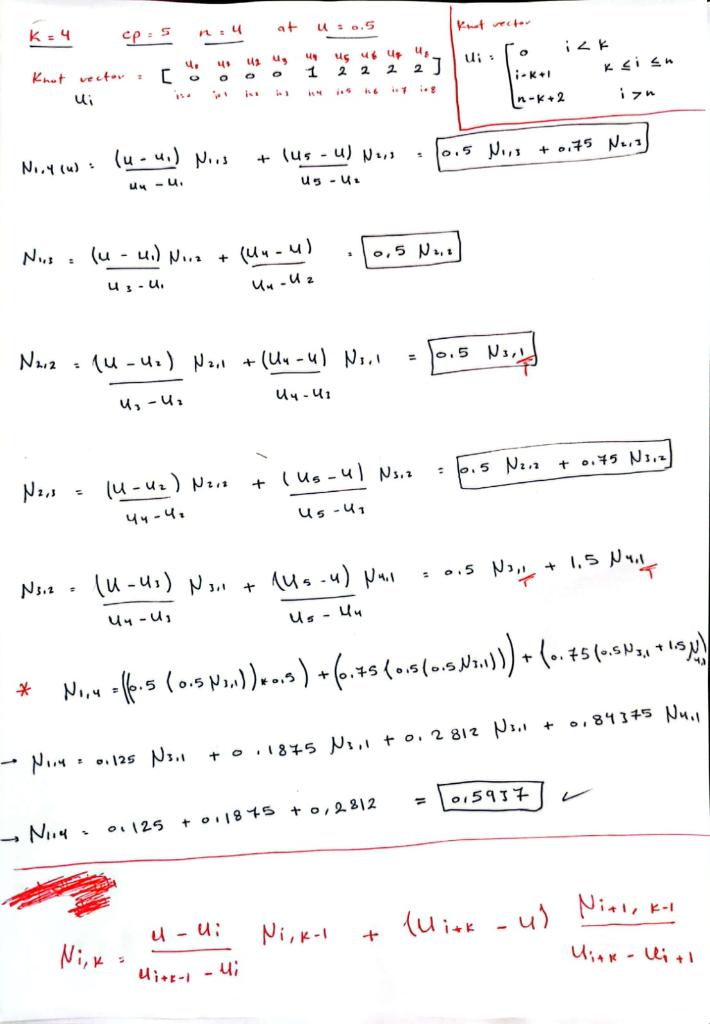 K = 4 cp = 5 n = 4 at u = 0.5
Knot vector
u0 u1 u2 u3 u4 u5 u6 u7 u8
Knot vector = [ 0 0 0 0 1 2 2 2 2 ]
ui i=0 i=1 i=2 i=3 i=4 i=5 i=6 i=7 i=8
ui = [ 0 i < k
i-k+1 k ≤ i ≤ n
n-k+2 i > n
N1,4(u) = (u - u1)/(u4 - u1) N1,3 + (u5 - u)/(u5 - u2) N2,3 = 0.5 N1,3 + 0.75 N2,3
N1,3 = (u - u1)/(u3 - u1) N1,2 + (u4 - u)/(u4 - u2) = 0,5 N2,2
N2,2 = (u - u2)/(u3 - u2) N2,1 + (u4 - u)/(u4 - u3) N3,1 = 0.5 N3,1
N2,3 = (u - u2)/(u4 - u2) N2,2 + (u5 - u)/(u5 - u3) N3,2 = 0.5 N2,2 + 0.75 N3,2
N3,2 = (u - u3)/(u4 - u3) N3,1 + (u5 - u)/(u5 - u4) N4,1 = 0.5 N3,1 + 1.5 N4,1
* N1,4 = ((0.5 (0.5 N3,1)) * 0.5) + (0.75 (0.5 (0.5 N3,1))) + (0.75 (0.5 N3,1 + 1.5 N4,1)
→ N1,4 = 0.125 N3,1 + 0.1875 N3,1 + 0.2812 N3,1 + 0,84375 N4,1
→ N1,4 = 0.125 + 0.1875 + 0,2812 = 0.5937 ✓
Ni,k = (u - ui)/(ui+k-1 - ui) Ni,k-1 + (ui+k - u) Ni+1,k-1/(ui+k - ui+1)